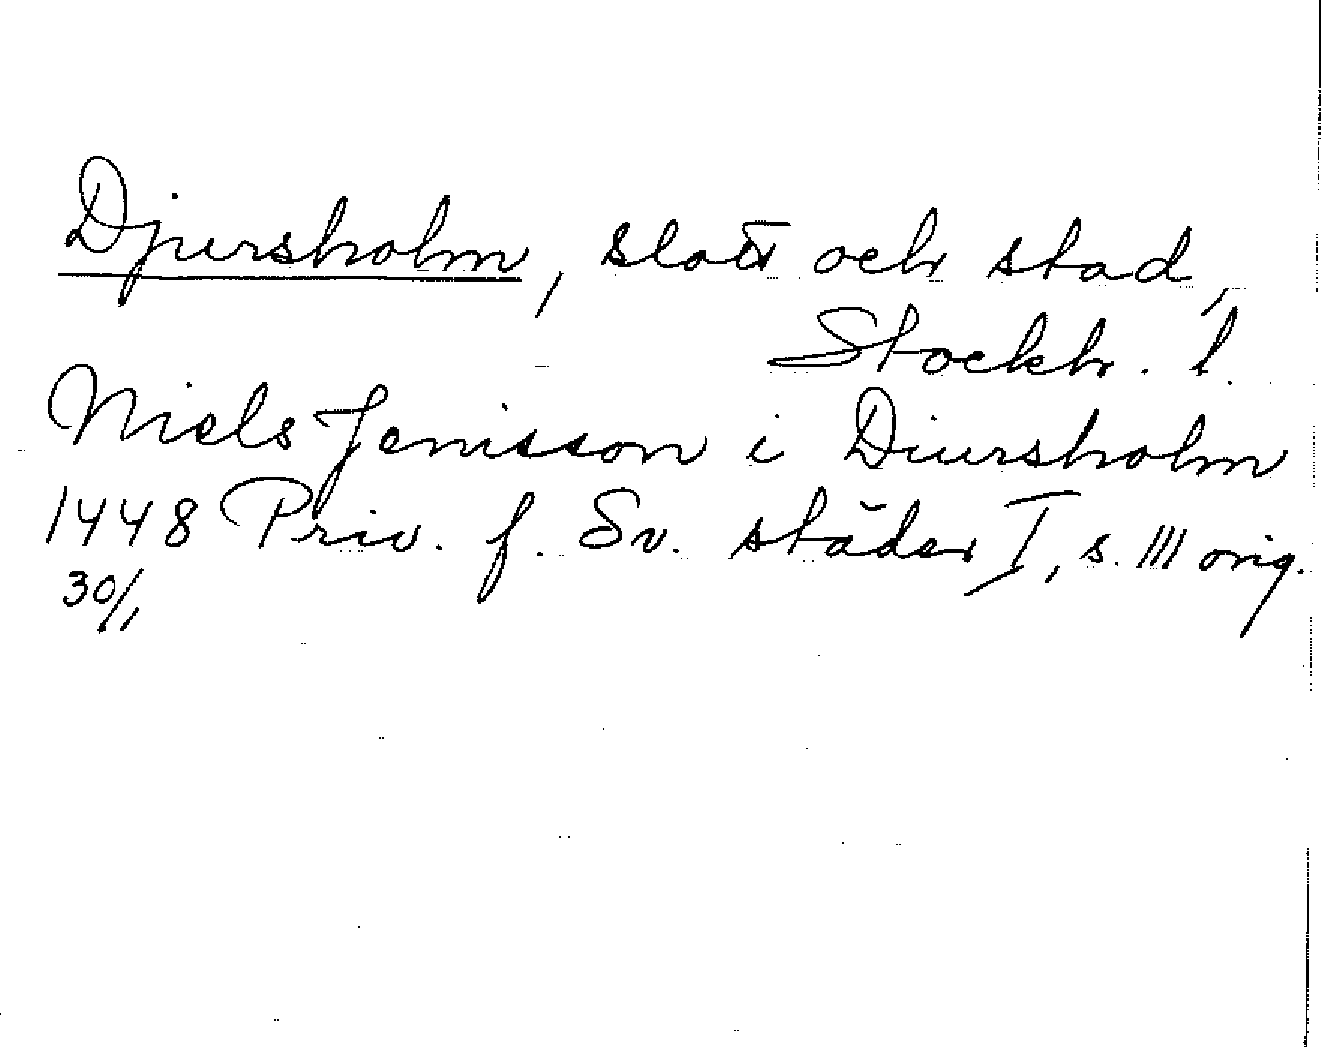 Djursholm, slott och stad,
Stockh. l.
Niels Jenisson i Diursholm
1448 Priv. f. Sv. städer I, s. 111 orig.
30/1